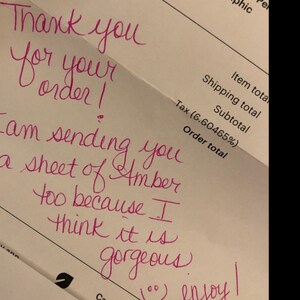 Thank you
for your
order!
I am sending you
a sheet of Amber
too because I
think it is
gorgeous
enjoy!
phic
Item total
Shipping total
Subtotal
Tax (6.60465%)
Order total